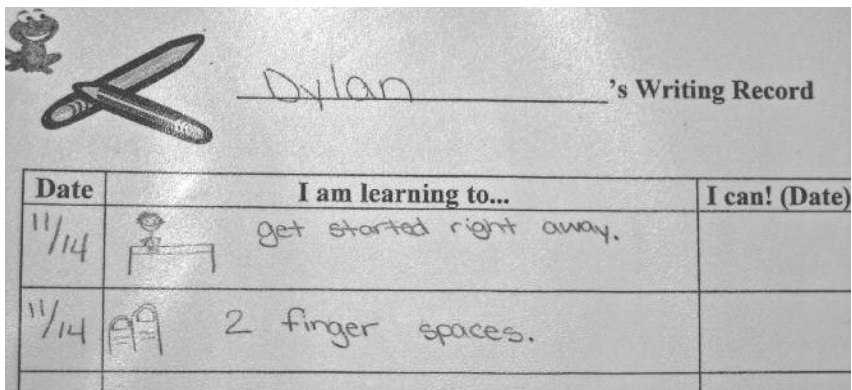 Dylan's Writing Record
Date I am learning to... I can! (Date)
11/14 get started right away.
11/14 2 finger spaces.